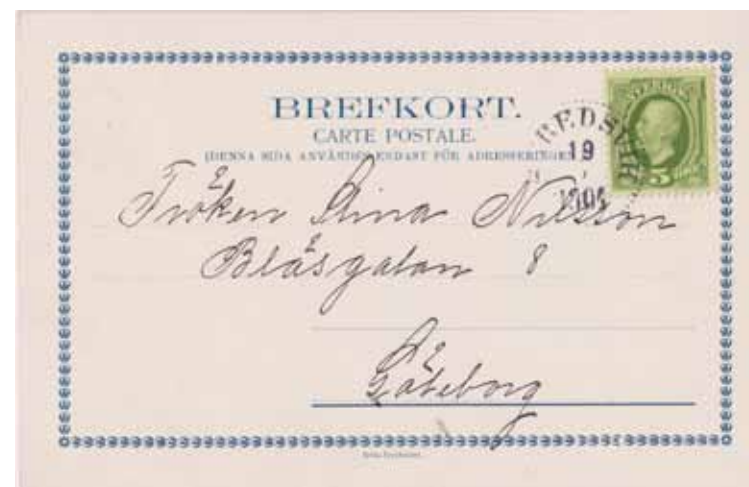 BREFKORT.
CARTE POSTALE.
(DENNA SIDA ANVÄNDES ENDAST FÖR ADRESSERINGEN)
Fröken Stina Nilsson
Blåsgatan 8
Göteborg
19
1904
5